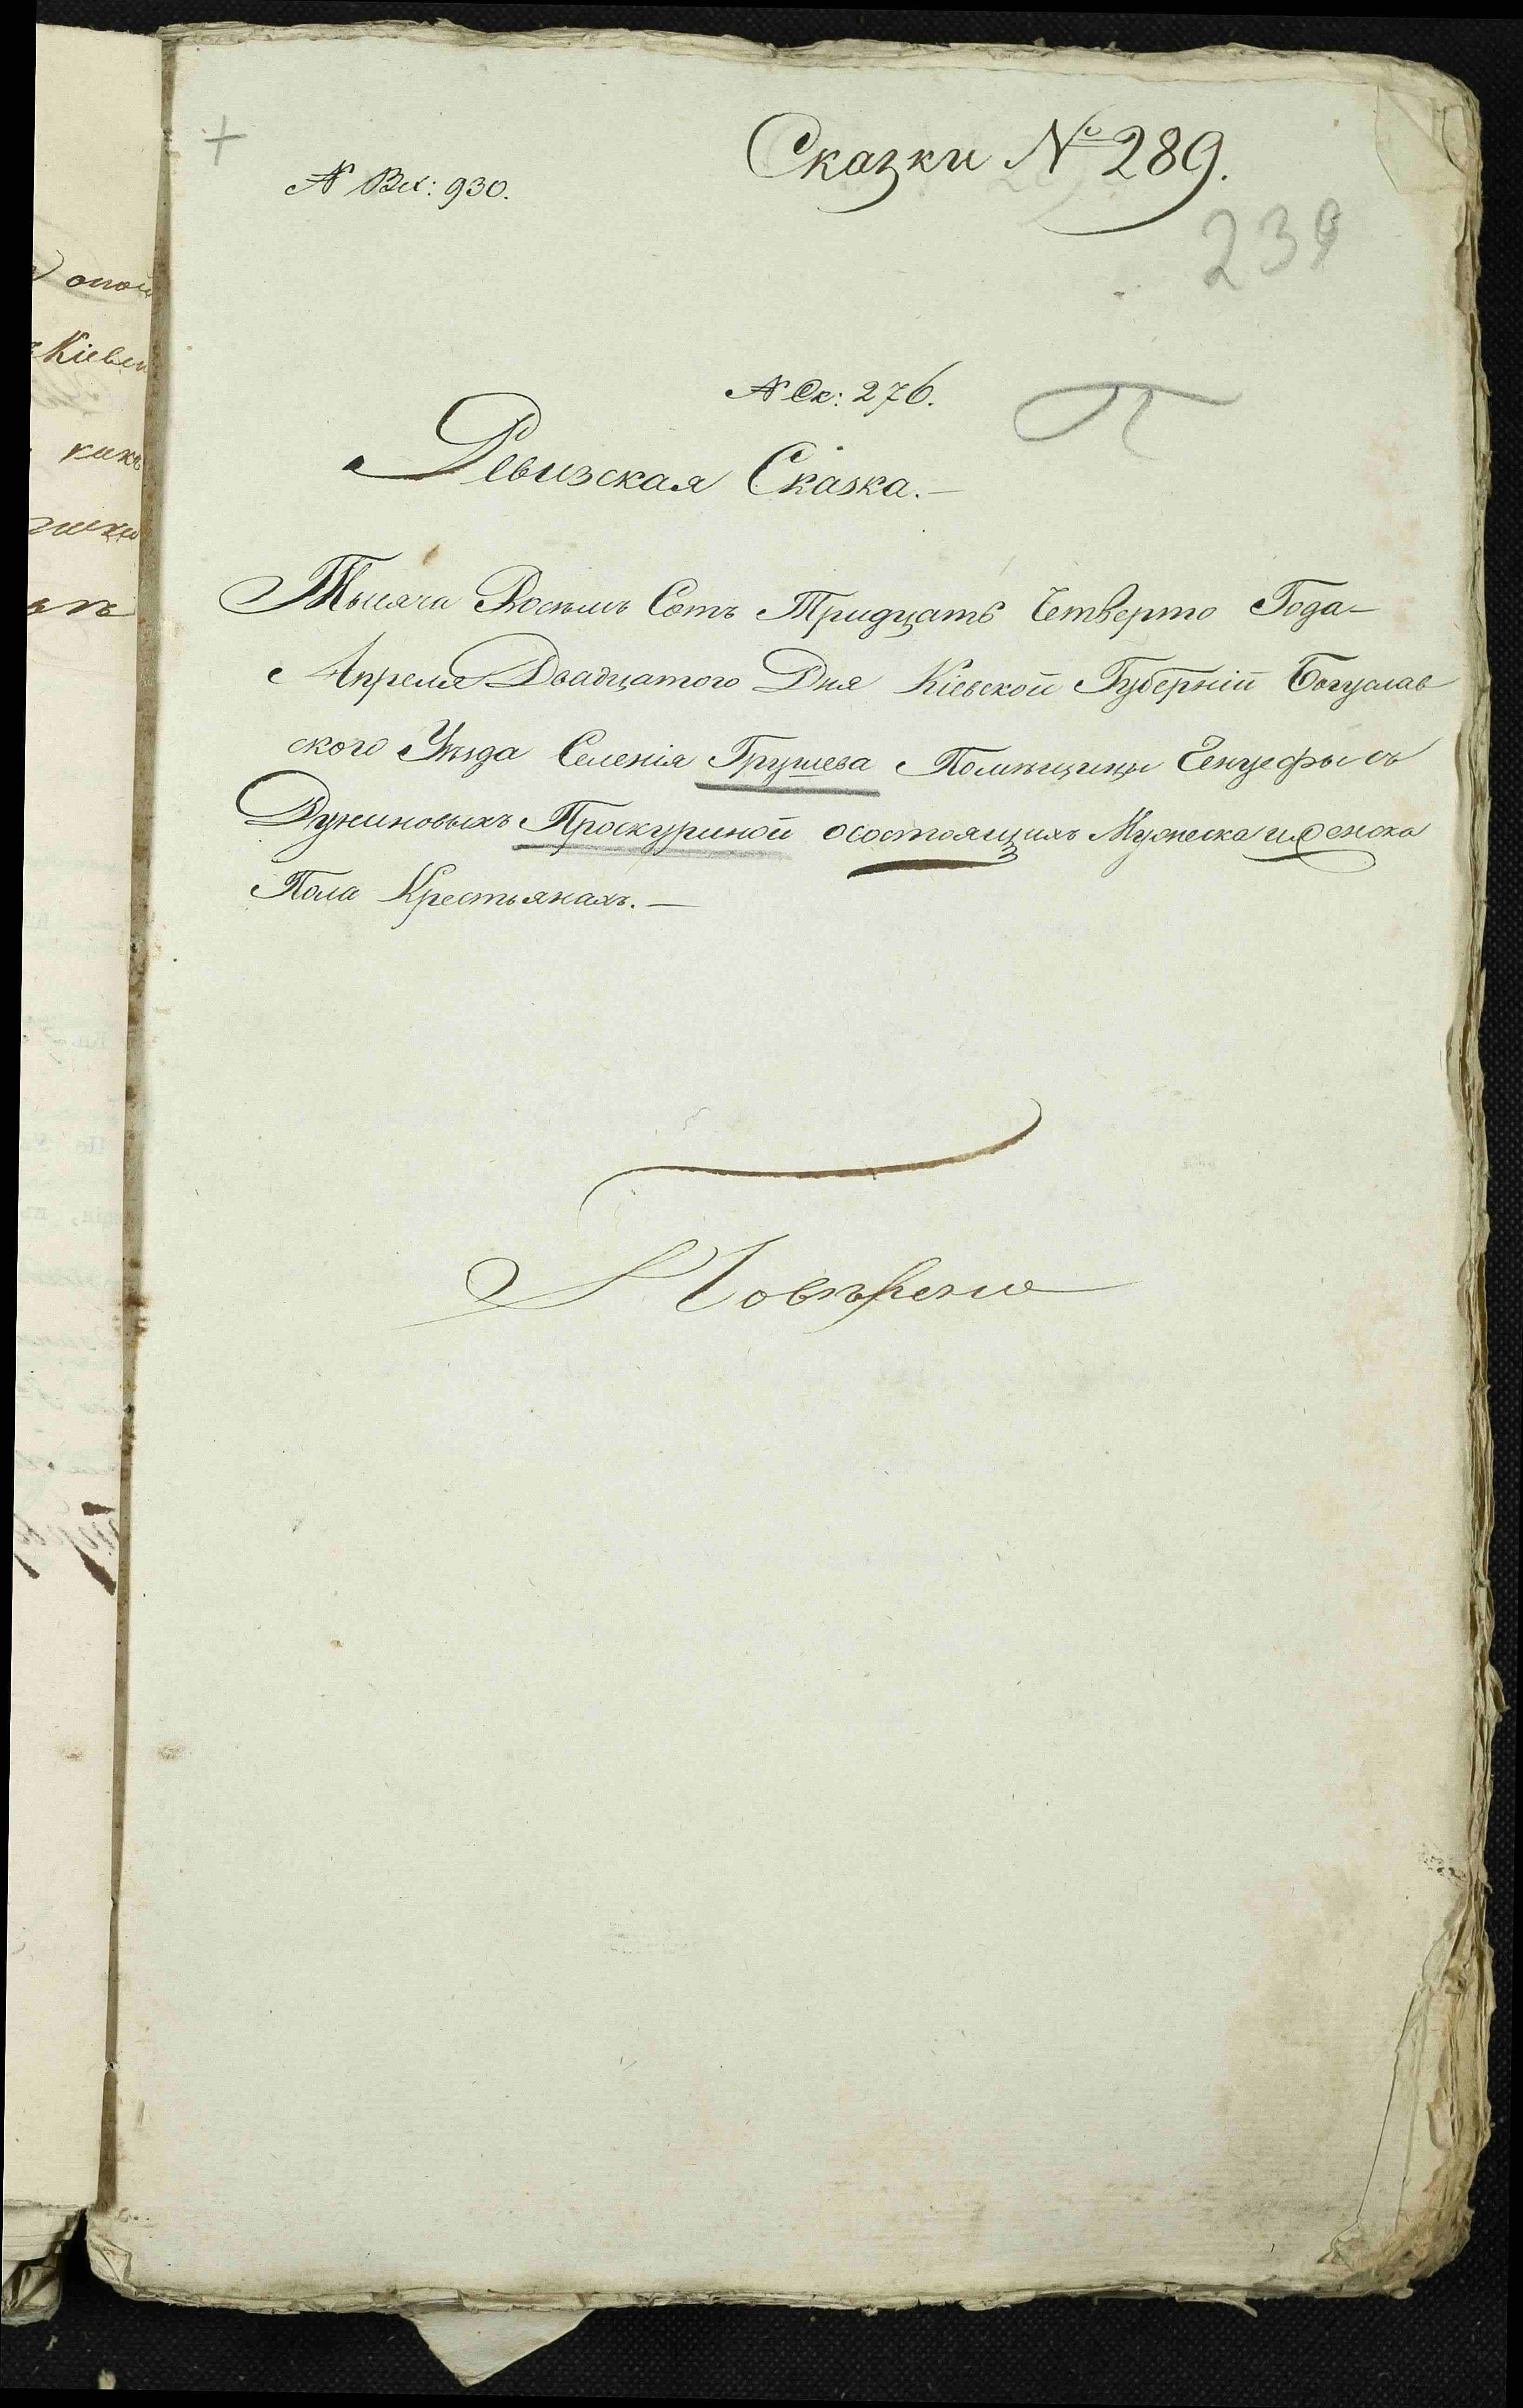 Сказки № 289.
№ Вх: 930.
239
№ Ск: 276.
П
Ревизская Сказка.—
Тысяча Восемь Сотъ Тридцать Четверто Года—
Апреля Двадцатого Дня Кіевской Губерніи Богуслав
ского Уѣзда Селенія Грушева Помѣщицы Генуефы съ
Дуниновыхъ Проскуриной о состоящихъ Мужеска и Женска
Пола Крестьянахъ.—